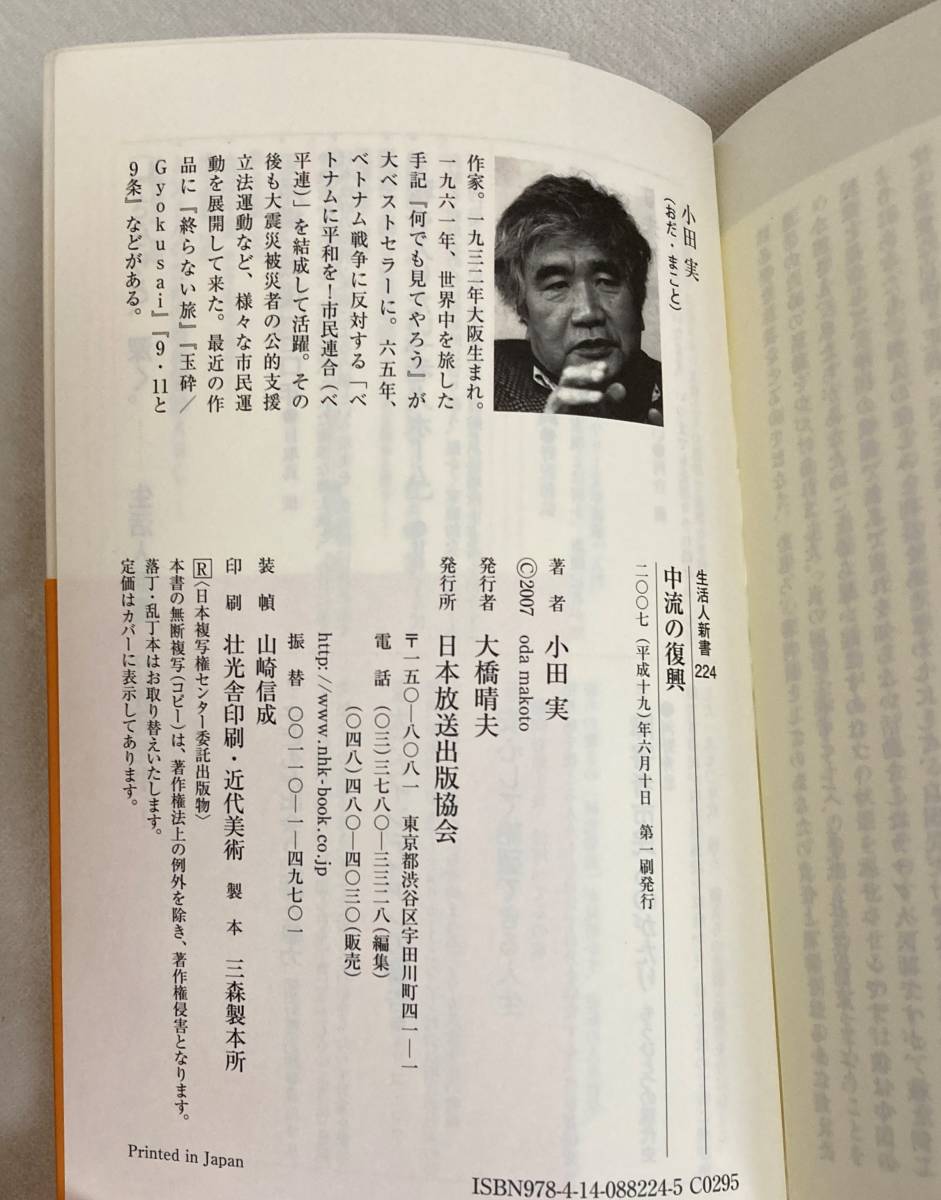 小田 実
(おだ・まこと)
作家。一九三二年大阪生まれ。
一九六一年、世界中を旅した
手記『何でも見てやろう』が
大ベストセラーに。六五年、
ベトナム戦争に反対する「ベ
トナムに平和を!市民連合(ベ
平連)」を結成して活躍。その
後も大震災被災者の公的支援
立法運動など、様々な市民運
動を展開して来た。最近の作
品に『終らない旅』『玉砕/
Gyokusai』『9・11と
9条』などがある。
生活人新書 224
中流の復興
二〇〇七(平成十九)年六月十日 第一刷発行
著 者 小田 実
©2007 oda makoto
発行者 大橋晴夫
発行所 日本放送出版協会
〒一五〇—八〇八一 東京都渋谷区宇田川町四一—一
電 話 (〇三)三七八〇—三三二八(編集)
(〇四八)四八〇—四〇三〇(販売)
http://www.nhk-book.co.jp
振 替 〇〇一一〇—一—四九七〇一
装 幀 山崎信成
印 刷 壮光舎印刷・近代美術 製 本 三森製本所
R〈日本複写権センター委託出版物〉
本書の無断複写(コピー)は、著作権法上の例外を除き、著作権侵害となります。
落丁・乱丁本はお取り替えいたします。
定価はカバーに表示してあります。
Printed in Japan
ISBN978-4-14-088224-5 C0295